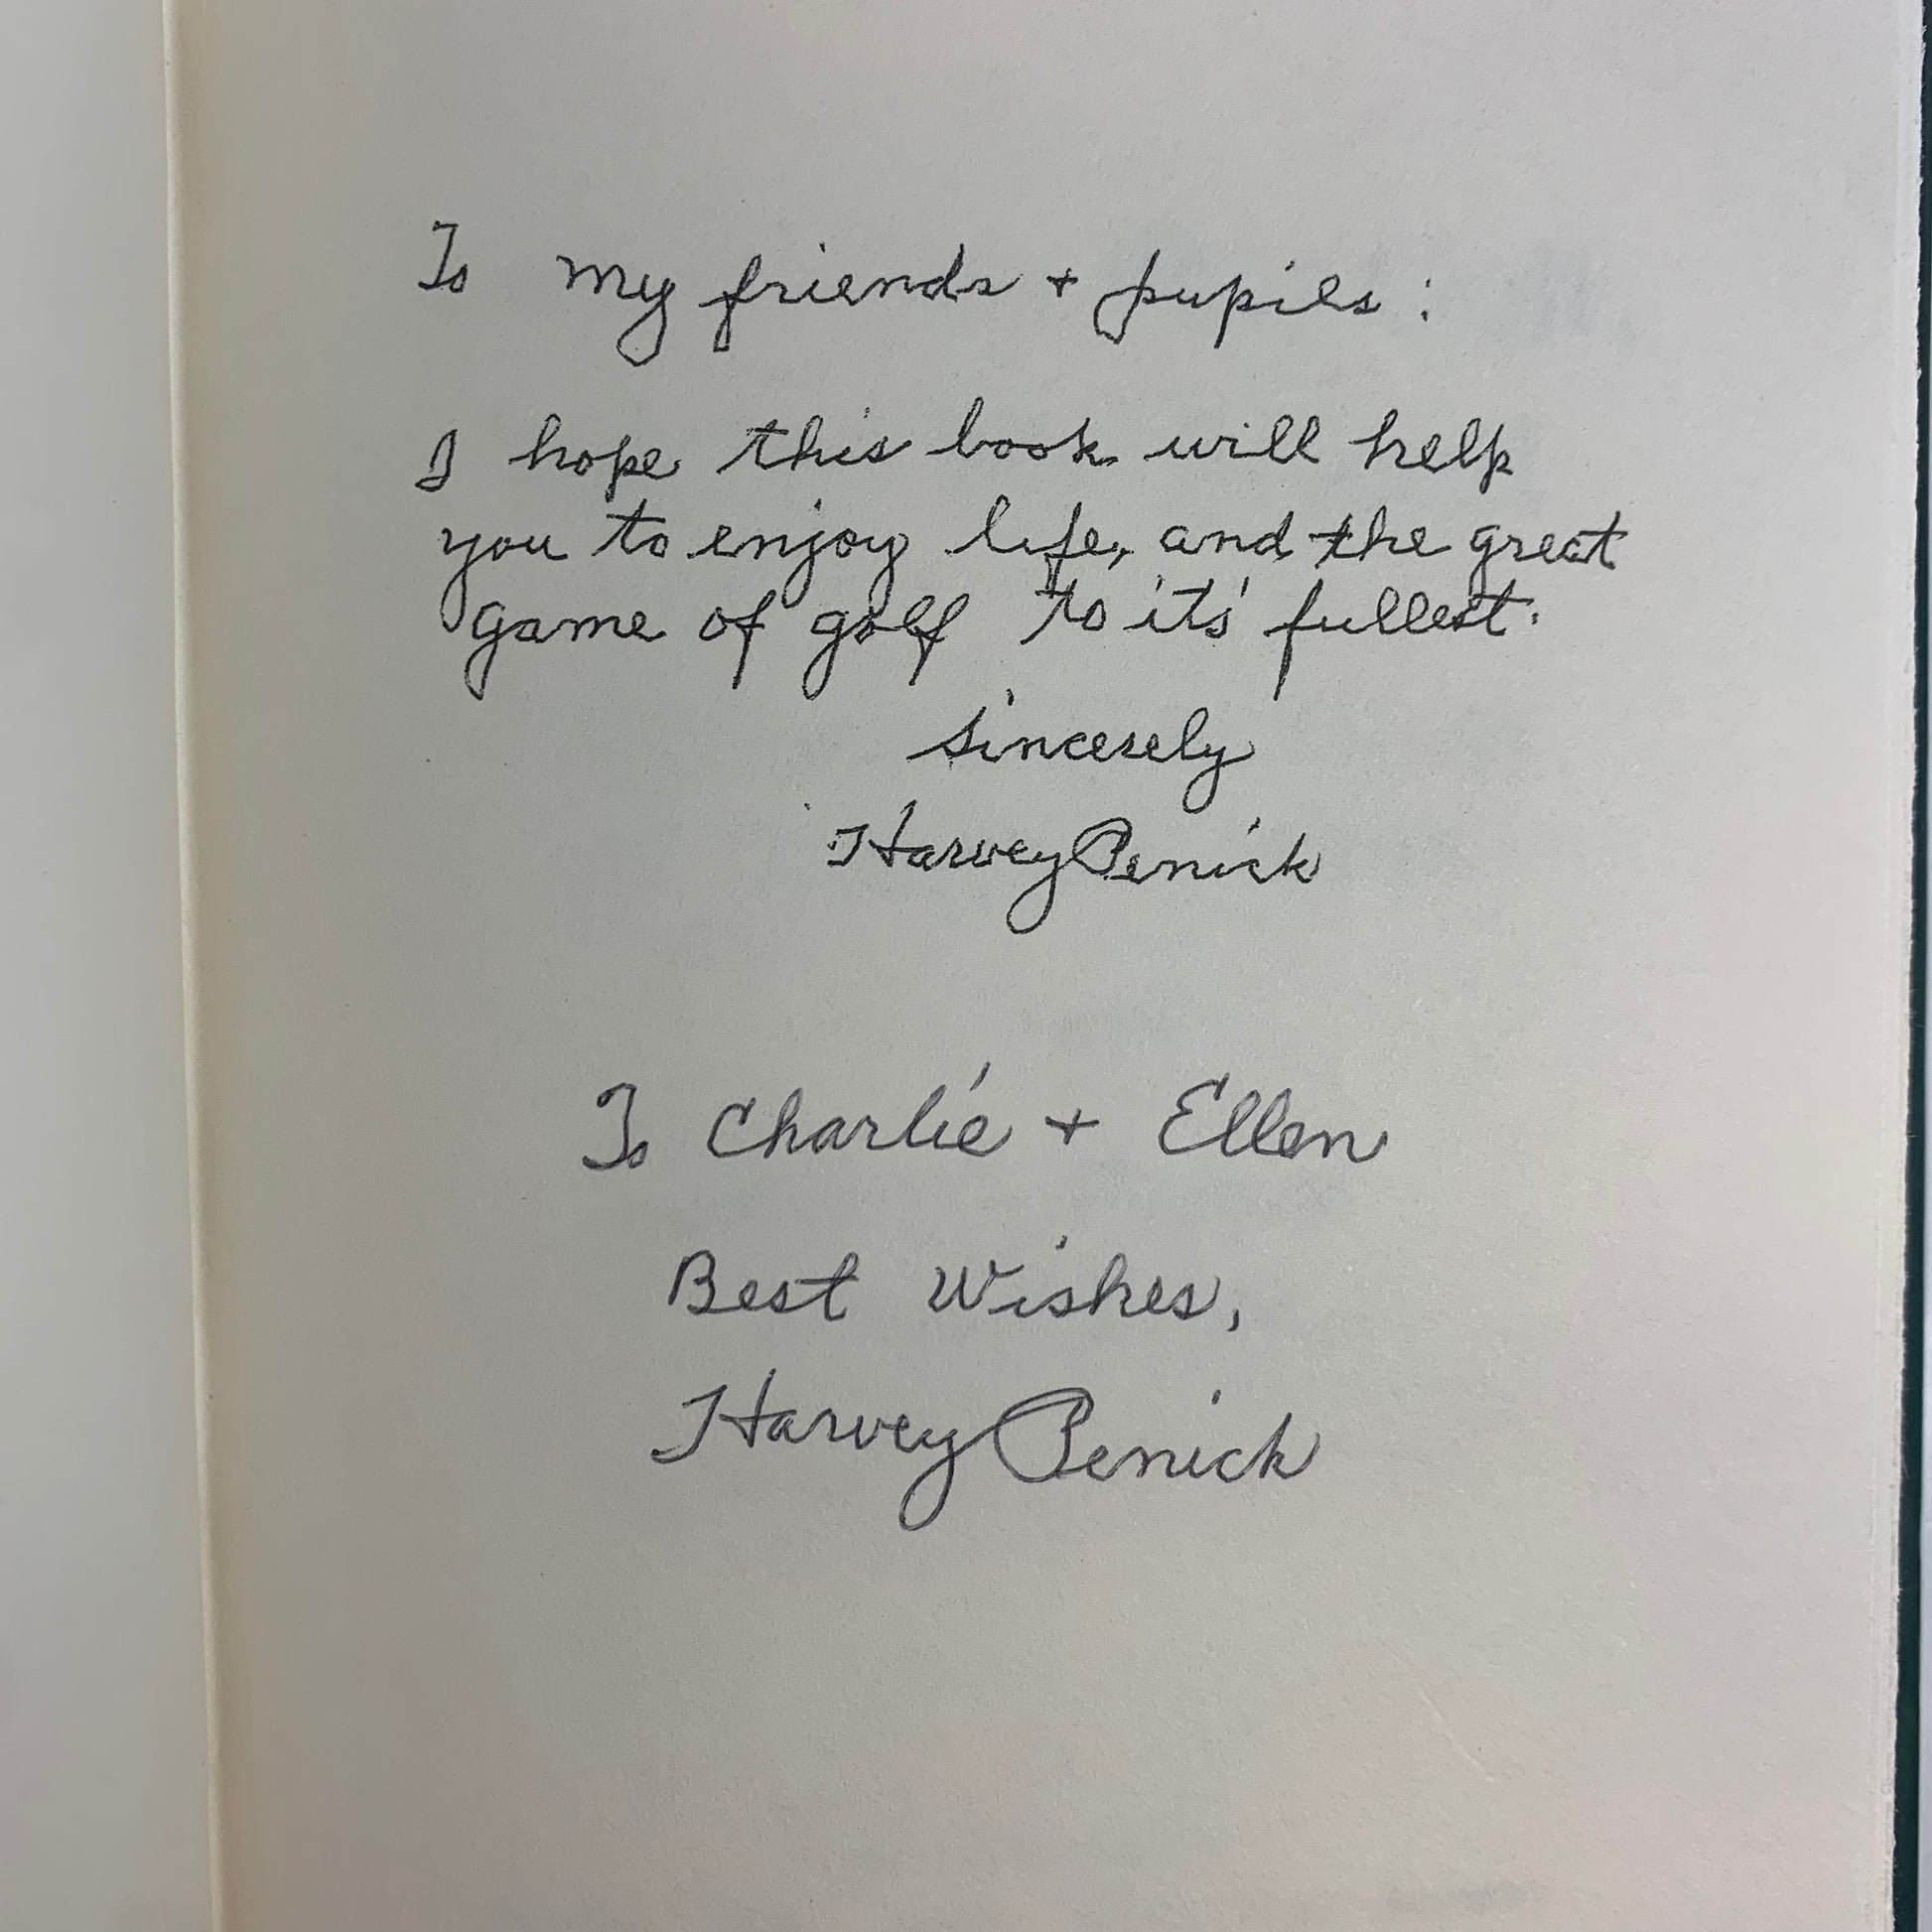 To my friends + pupils:
I hope this book will help
you to enjoy life, and the great
game of golf to it's fullest.
Sincerely
Harvey Penick
To Charlie + Ellen
Best Wishes,
Harvey Penick